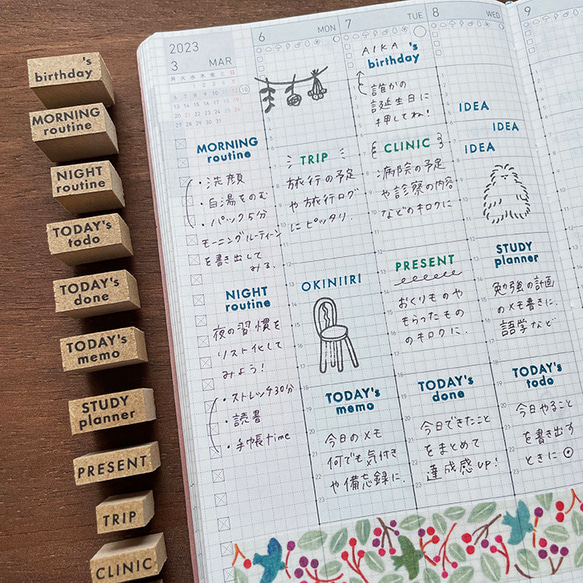 's
birthday
MORNING
routine
NIGHT
routine
TODAY's
todo
TODAY's
done
TODAY's
memo
STUDY
planner
PRESENT
TRIP
CLINIC
2023
3 MAR
6 MON
7 TUE
8 WED
9
AIKA's
birthday
誰かの
誕生日に
押してね!
IDEA
IDEA
IDEA
MORNING
routine
・洗顔
・白湯をのむ
・パック5分
モーニングルーティーン
を書き出して
みる。
TRIP
旅行の予定
や旅行ログ
にピッタリ.
CLINIC
病院の予定
や診察の内容
などのキロクに
NIGHT
routine
夜の習慣を
リスト化して
みよう!
・ストレッチ30分
・読書
・手帳time
OKINIIRI
PRESENT
おくりものや
もらったもの
のキロクに.
STUDY
planner
勉強の計画
のメモ書きに.
語学など
TODAY's
memo
今日のメモ
何でも気付き
や備忘録に.
TODAY's
done
今日できたこと
をまとめて
達成感UP!
TODAY's
todo
今日やること
を書き出す
ときに